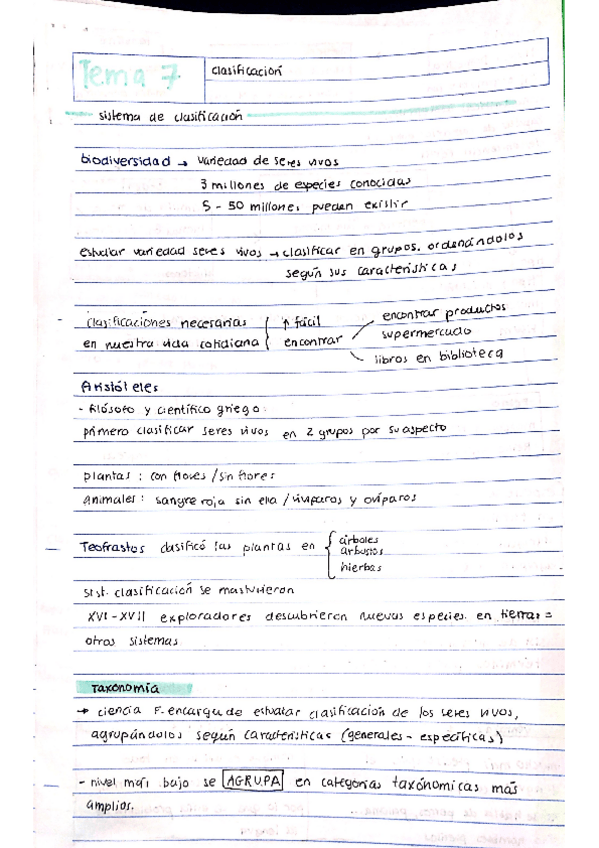 Tema 7
clasificación
sistema de clasificación
biodiversidad → variedad de seres vivos
3 millones de especies conocidas
5 - 50 millones pueden existir
estudiar variedad seres vivos → clasificar en grupos. ordenándolos
según sus características
clasificaciones necesarias { ↑ fácil
en nuestra vida cotidiana { encontrar
encontrar productos
supermercado
libros en biblioteca
Aristóteles
- filósofo y científico griego.
primero clasificar seres vivos en 2 grupos por su aspecto
plantas: con flores / sin flores
animales: sangre roja sin ella / vivíparos y ovíparos
Teofrastos clasificó las plantas en { árboles
arbustos
hierbas
sist. clasificación se mantuvieron
XVI - XVII exploradores descubrieron nuevas especies. en tierras =
otros sistemas
Taxonomía
→ ciencia F. encarga de estudiar clasificación de los seres vivos,
agrupándolos según características (generales - específicas)
- nivel más bajo se AGRUPA en categorías taxónomicas más
amplios.